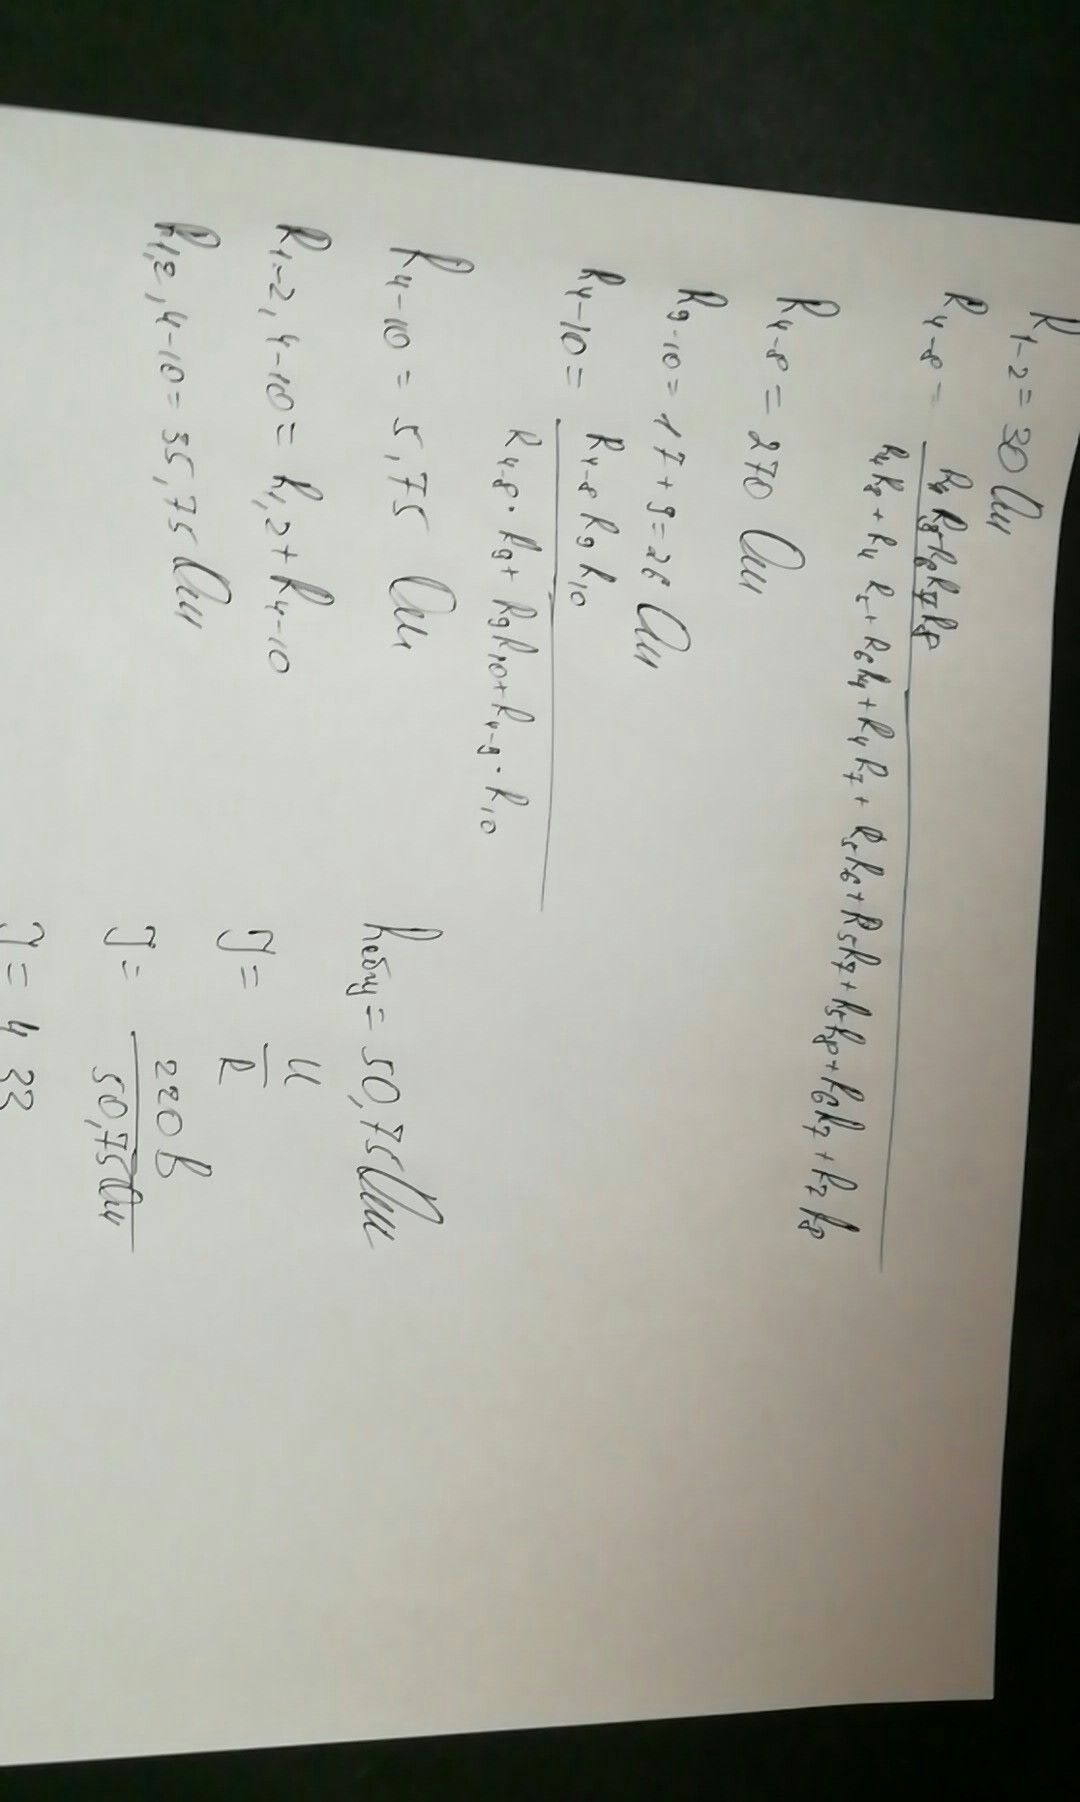 R1-2 = 30 Ом
R4-8 = R4R5R6R7R8 / R4R8 + R4R5 + R6R4 + R4R7 + R5R6 + R5R7 + R5R8 + R6R7 + R7R8
R4-8 = 270 Ом
R9-10 = 17 + 9 = 26 Ом
R4-10 = R4-8 R9 R10 / R4-8 · R9 + R9R10 + R4-8 · R10
R4-10 = 5,75 Ом
R1-2, 4-10 = R1,2 + R4-10
R1,2, 4-10 = 35,75 Ом
Rобщ = 50,75 Ом
J = U / R
J = 220 В / 50,75 Ом
J = 4 33